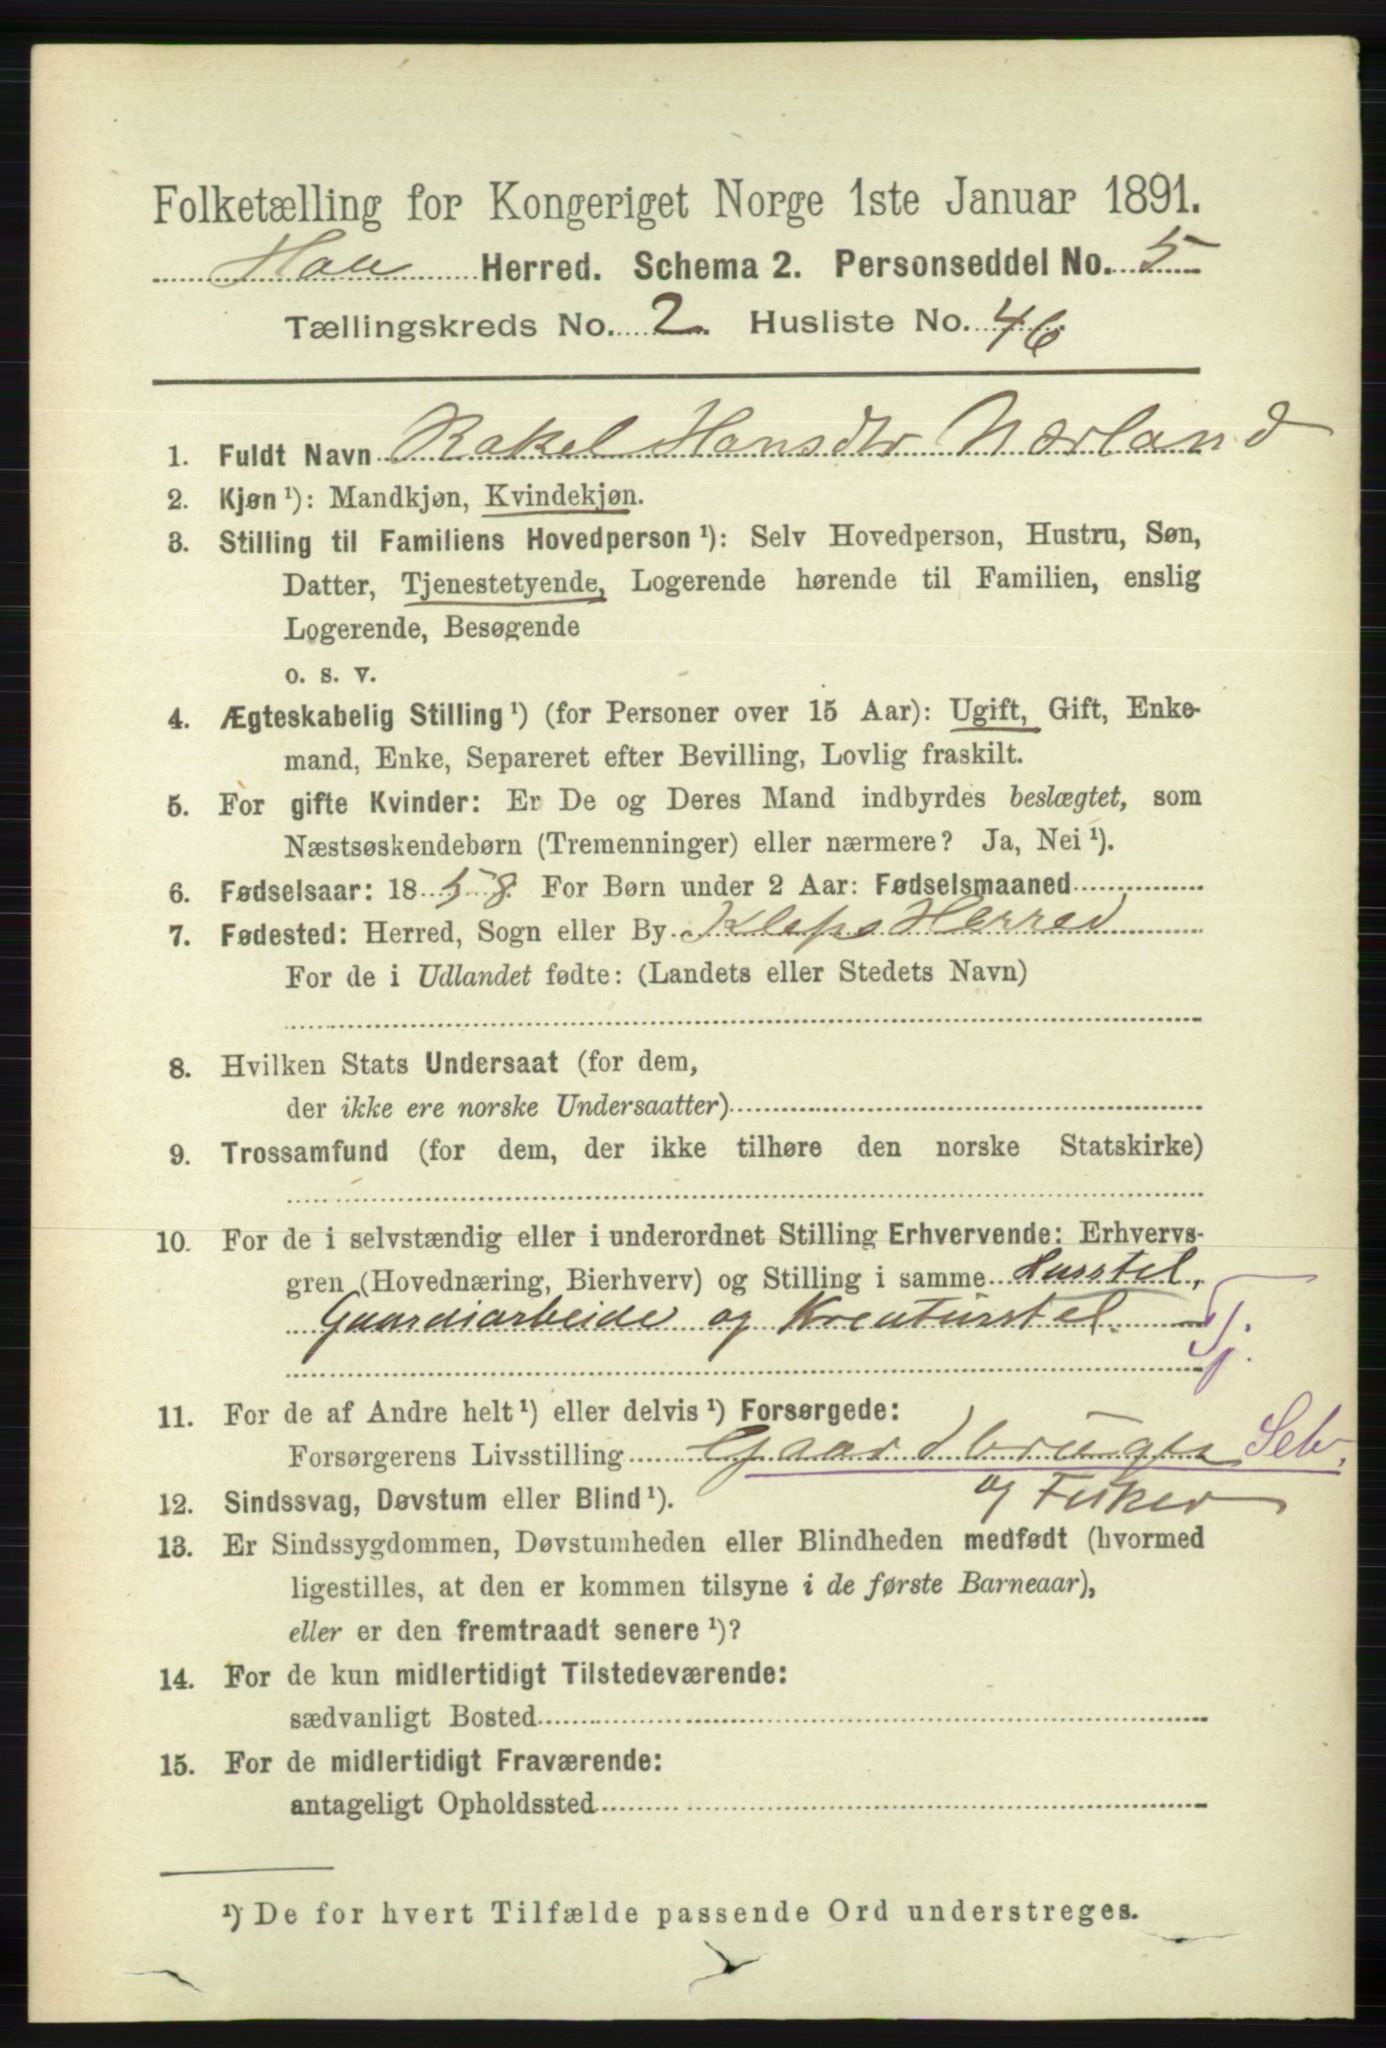 Folketælling for Kongeriget Norge 1ste Januar 1891.
Haa Herred. Schema 2. Personseddel No. 5
Tællingskreds No. 2. Husliste No. 46
1. Fuldt Navn Rakel Hansdtr Nærland
2. Kjøn ¹): Mandkjøn, Kvindekjøn.
3. Stilling til Familiens Hovedperson ¹): Selv Hovedperson, Hustru, Søn,
Datter, Tjenestetyende, Logerende hørende til Familien, enslig
Logerende, Besøgende
o. s. v.
4. Ægteskabelig Stilling ¹) (for Personer over 15 Aar): Ugift, Gift, Enke-
mand, Enke, Separeret efter Bevilling, Lovlig fraskilt.
5. For gifte Kvinder: Er De og Deres Mand indbyrdes beslægtet, som
Næstsøskendebørn (Tremenninger) eller nærmere? Ja, Nei ¹).
6. Fødselsaar: 1858. For Børn under 2 Aar: Fødselsmaaned
7. Fødested: Herred, Sogn eller By Kleps Herred
For de i Udlandet fødte: (Landets eller Stedets Navn)
8. Hvilken Stats Undersaat (for dem,
der ikke ere norske Undersaatter)
9. Trossamfund (for dem, der ikke tilhøre den norske Statskirke)
10. For de i selvstændig eller i underordnet Stilling Erhvervende: Erhvervs-
gren (Hovednæring, Bierhverv) og Stilling i samme Husstel,
Gaardsarbeide og Kreaturstel. Tj.
11. For de af Andre helt ¹) eller delvis ¹) Forsørgede:
Forsørgerens Livsstilling Gaardbruger Selv.
og Fisker
12. Sindssvag, Døvstum eller Blind ¹).
13. Er Sindssygdommen, Døvstumheden eller Blindheden medfødt (hvormed
ligestilles, at den er kommen tilsyne i de første Barneaar),
eller er den fremtraadt senere ¹)?
14. For de kun midlertidigt Tilstedeværende:
sædvanligt Bosted
15. For de midlertidigt Fraværende:
antageligt Opholdssted
¹) De for hvert Tilfælde passende Ord understreges.